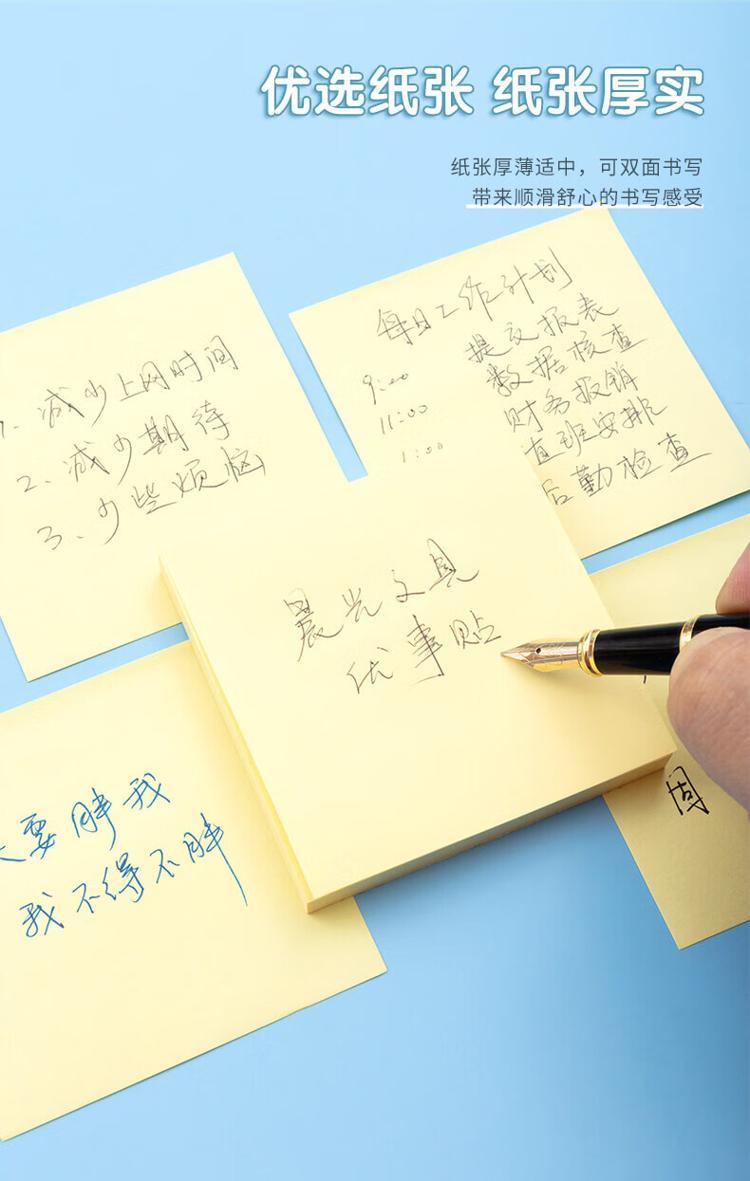 优选纸张 纸张厚实
纸张厚薄适中，可双面书写
带来顺滑舒心的书写感受
1、减少上网时间
2、减少期待
3、少些烦恼
每日工作计划
9:00 提交报表
11:00 数据核查
1:00 财务报销
值班安排
后勤检查
晨光文具
优事贴
天要胖我
我不得不胖
周